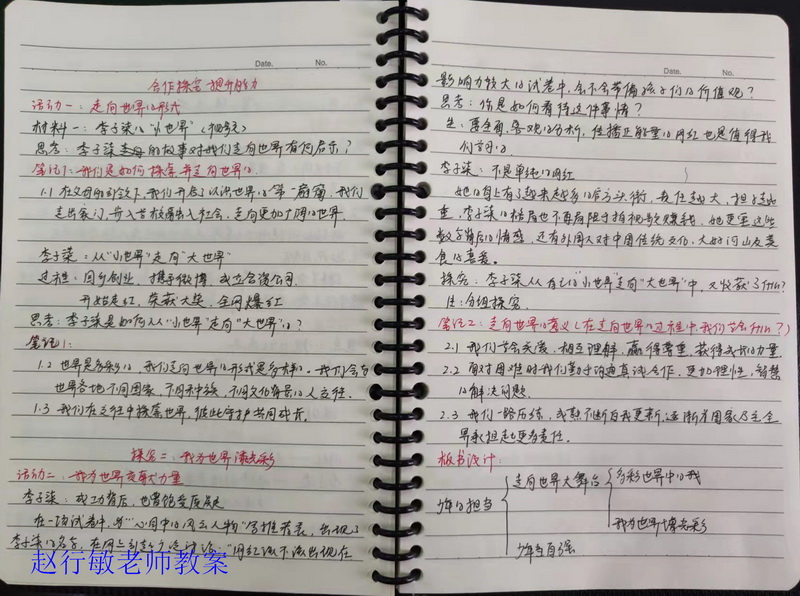 Date. No.
合作探究 提升能力
活动一：走向世界的形式
材料一：李子柒的“小世界”（视频）
思考：李子柒的故事对我们走向世界有何启示？
笔记1：我们是如何探索并走向世界的
1.1 在父母的引领下，我们开启了认识世界的第一扇窗，我们
走出家门，步入学校融入社会，走向更加广阔的世界.
李子柒：从“小世界”走向“大世界”
过程：回乡创业，携手微博，成立合资公司.
开始走红，荣获大奖，全网爆红
思考：李子柒是如何从“小世界”走向“大世界”的？
笔记1：
1.2 世界是多彩的，我们走向世界的形式是多样的. 我们会与
世界各地不同国家、不同种族、不同文化背景的人交往.
1.3 我们在交往中探索世界，彼此守护共同成长.
探究二：我为世界添光彩
活动二：我为世界贡献力量
李子柒：成功背后，也曾饱受质疑
在一场试卷中，为“心目中的风云人物”写推荐表，出现了
李子柒的名字，在网上引起了这讨论，“网红该不该出现在
赵行敏老师教案
Date. No.
影响力较大的试卷中，会不会带偏孩子们的价值观？
思考：你是如何看待这件事情？
生：要全面、客观的分析，传播正能量的网红也是值得我
们学习的
李子柒：不是单纯的网红
她的身上有了越来越多的官方头衔，责任越大，担子越
重，李子柒的格局也不再局限于拍视频赚钱，她更重这些
数字背后的情感，还有外国人对中国传统文化、大好河山及美
食的喜爱。
探究：李子柒从自己的“小世界”走向“大世界”中，又收获了什么？
生：分组探究.
笔记2：走向世界的意义（在走向世界的过程中我们学会什么？）
2.1 我们学会关爱，相互理解，赢得尊重，获得成长的力量.
2.2 面对困难时我们勇于沟通真诚合作，更加理性、智慧
的解决问题.
2.3 我们一路历练，成熟不断自我更新，逐渐为国家及至全
世界承担起更多责任.
板书设计：
少年的担当
走向世界大舞台
多彩世界中的我
我为世界增光彩
少年当自强